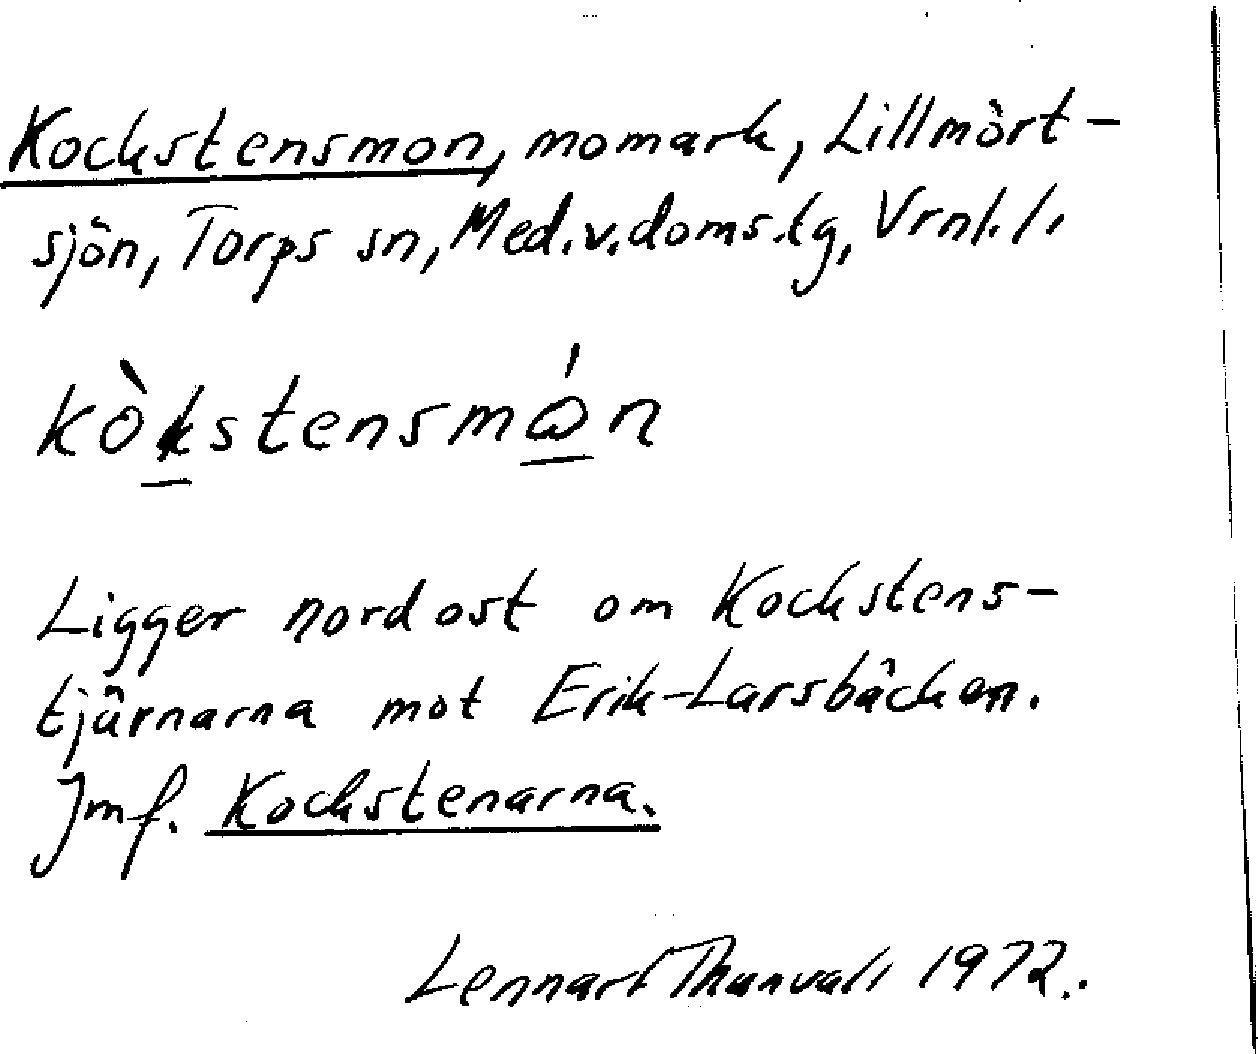 Kockstensmon, momark, Lillmört-
sjön, Torps sn, Med.v.doms.tg, Vrnl. l.
kòkstensmón
Ligger nordost om Kockstens-
tjärnarna mot Erik-Larsbäcken.
Jmf. Kockstenarna.
Lennart Thunvall 1972.